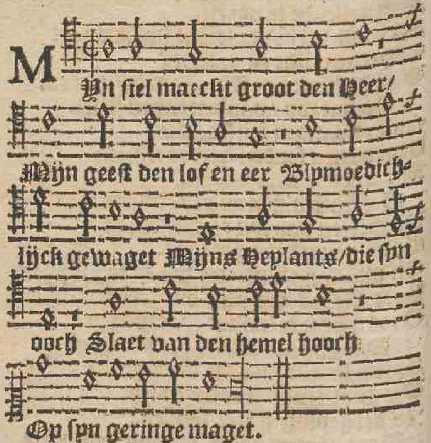 MYn siel maeckt groot den Heer/
Mijn geest den lof en eer Blymoedich-
lijck gewaget Mijns Heylants/die syn
ooch Slaet van den hemel hooch
Op syn geringe maget.